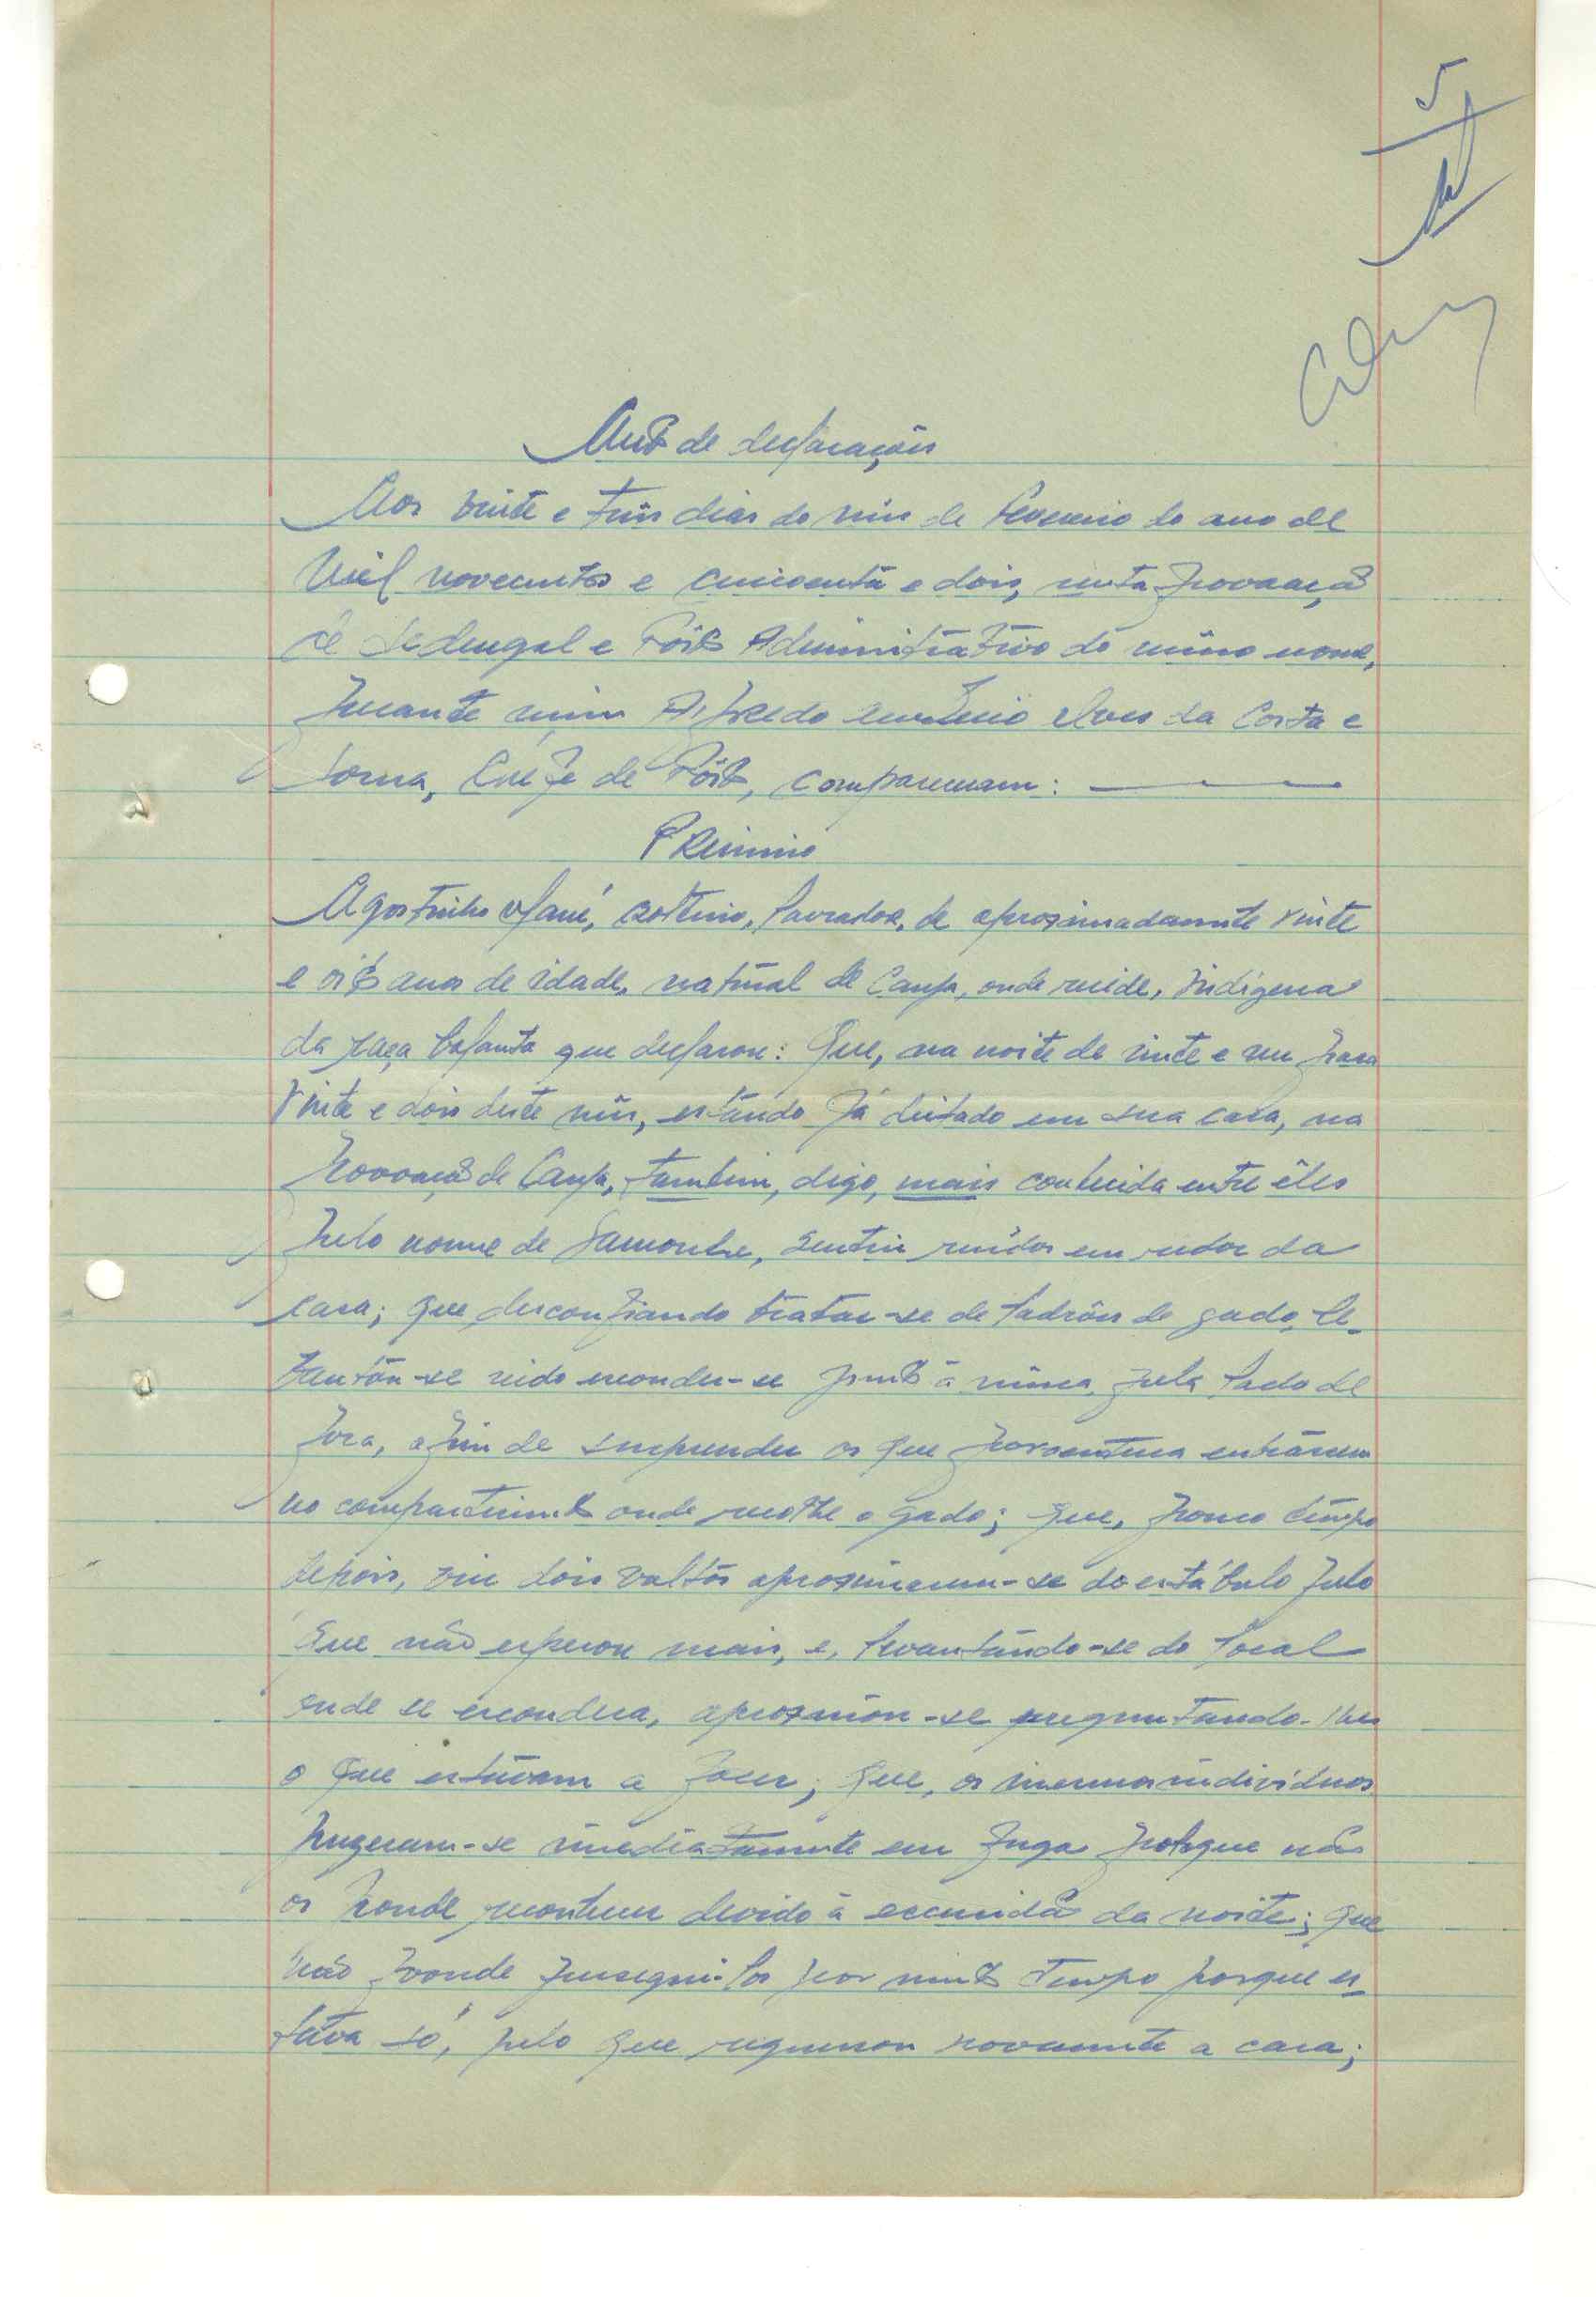 5
Auto de declarações
Aos vinte e três dias do mês de Fevereiro do ano de
Mil novecentos e cincoenta e dois, nesta povoação
de Sedengal e Pôsto Administrativo do mesmo nome,
perante mim Alfredo Alves da Costa e
Chefe de Pôsto, compareceram:
Primeiro
Agostinho Mané, solteiro, lavrador, de aproximadamente vinte
e oito anos de idade, natural de onde reside, indígena
da raça balanta que declarou: Que, na noite de vinte e um para
vinte e dois deste mês, estando já deitado em sua casa, na
povoação de também, digo, mais conhecida entre êles
pelo nome de sentiu ruídos em redor da
casa; que desconfiando tratar-se de ladrões de gado, le-
vantou-se indo esconder-se junto à mesma, pelo lado de
fora, afim de surpreender os que porventura entrassem
no compartimento onde recolhe o gado; que, pouco tempo
depois, viu dois vultos aproximarem-se do estábulo pelo
que não esperou mais, e, levantando-se do local
onde se escondera, aproximou-se preguntando-lhes
o que estavam a fazer; que, os mesmos indivíduos
puzeram-se imediatamente em fuga pelo que não
os poude reconhecer devido à escuridão da noite; que
não poude persegui-los por muito tempo porque es-
tava só, pelo que regressou novamente a casa;